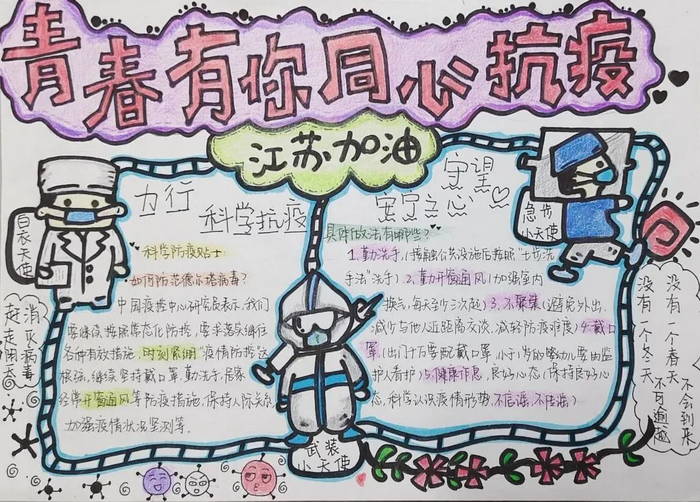 青春有你同心抗疫
江苏加油
力行
科学抗疫
科学防疫贴士
如何防范德尔塔病毒?
中国疫控中心研究员表示,我们
要继续按照常态化防控,要求落实继往
各种有效措施,时刻紧绷"疫情防控这
根弦,继续坚持戴口罩,勤洗手,居家
经常开窗通风等防疫措施,保持人际关系
加强疫情状况监测等。
守望
安定之心
具体做法有哪些?
1.勤洗手,(接触公共设施后按照"七步洗
手法"洗手)2.勤开窗通风(加强室内
换气,每天至少三次起)3.不聚集(避免外出,
减少与他人近距离交谈,减轻防疫难度)4.戴口
罩(出门千万要配戴口罩,小于1岁的婴幼儿要由监
护人看护)5.健康作息,良好心态(保持良好心
态,科学认识疫情形势,不信谣,不传谣)
白衣天使
急步
小天使
武装
小天使
消灭病毒
赶走阴霾
没有一个冬天不可逾越
没有一个春天不会到来